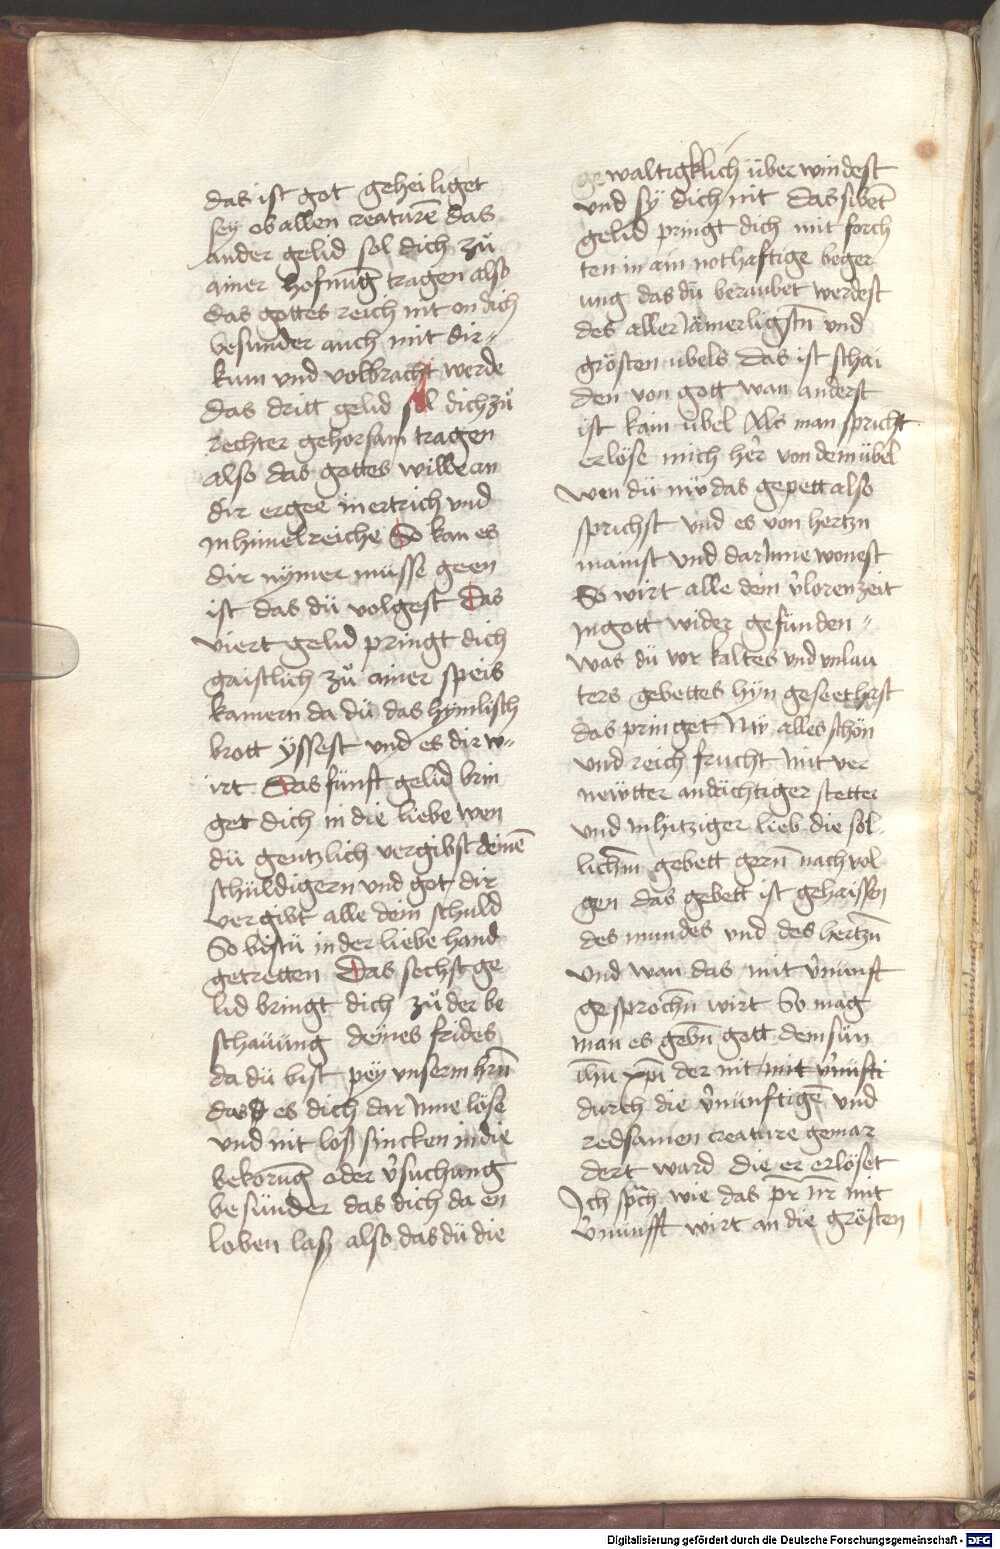 das ist got geheiliget
sey ob allen creaturē das
ander gelid sol dich zů
ainer hofnūg tragen also
das gottes reich nit on dich
besunder auch mit dir
kum vnd volbracht werde
das dritt gelid sol dich zů
rechter gehorsam tragen
also das gottes wille an
dir ergee in ertrich vnd
in himelreiche So kan es
dir nÿmer müsse geen
ist das dü volgest Das
viert gelid pringt dich
gaistlich zů ainer speis
kamern da dü das hymlisch
brott ÿssest vnd es dir w
irt Das fünft gelid brin
get dich in die liebe wen
dü gentzlich vergibst deinē
schüldigern vnd got dir
vergibt alle dein schuld
So bistü in der liebe hand
getretten Das sechst ge
lid bringt dich zů der be
schaüüng deines frides
da dü bist peÿ vnserm hrn̄
das es dich dar Inne löse
vnd nit loß sincken in die
bekorūg oder v̄suchung
besünder das dich da en
loben laß also das dü die
gewaltigklich über windest
vnd sÿ dich nit Das sibēt
gelid pringt dich mit forch
ten in ain nothaftige beger
ung das dü beraubet werdest
des aller Jämerligstn̄ vnd
grösten übels Das ist schai
den von gott wan anderst
ist kain übel Als man spricht
erlöse mich her̄ von dem übel
wen dü nw das gepett also
sprichst vnd es von hertzn
mainst vnd dar Inne wonest
So wirt alle dein v̄loren zeit
In gott wider gefünden
was dü vor kaltes vnd vnlau
ters gebettes hÿn geseet hest
das pringet Nw alles schön
vnd reich frucht mit ver
newtter andächtiger stetter
vnd in hitziger lieb die sol
lichem gebett gern̄ nach vol
gen das gebett ist gehaissen
des mundes vnd des hertzn̄
vnd wan das mit v̄nunft
gesprochn̄ wirt So mag
man es gebn̄ gott dem sün
ihū xp̄i der nit mit v̄nüfti
durch die v̄nünftigē vnd
redsamen creature gemar
dert ward die er erlöset
Ich sp̄ch wie das pr̄ nr̄ mit
v̄nunfft wirt an die grösten
Digitalisierung gefördert durch die Deutsche Forschungsgemeinschaft - DFG